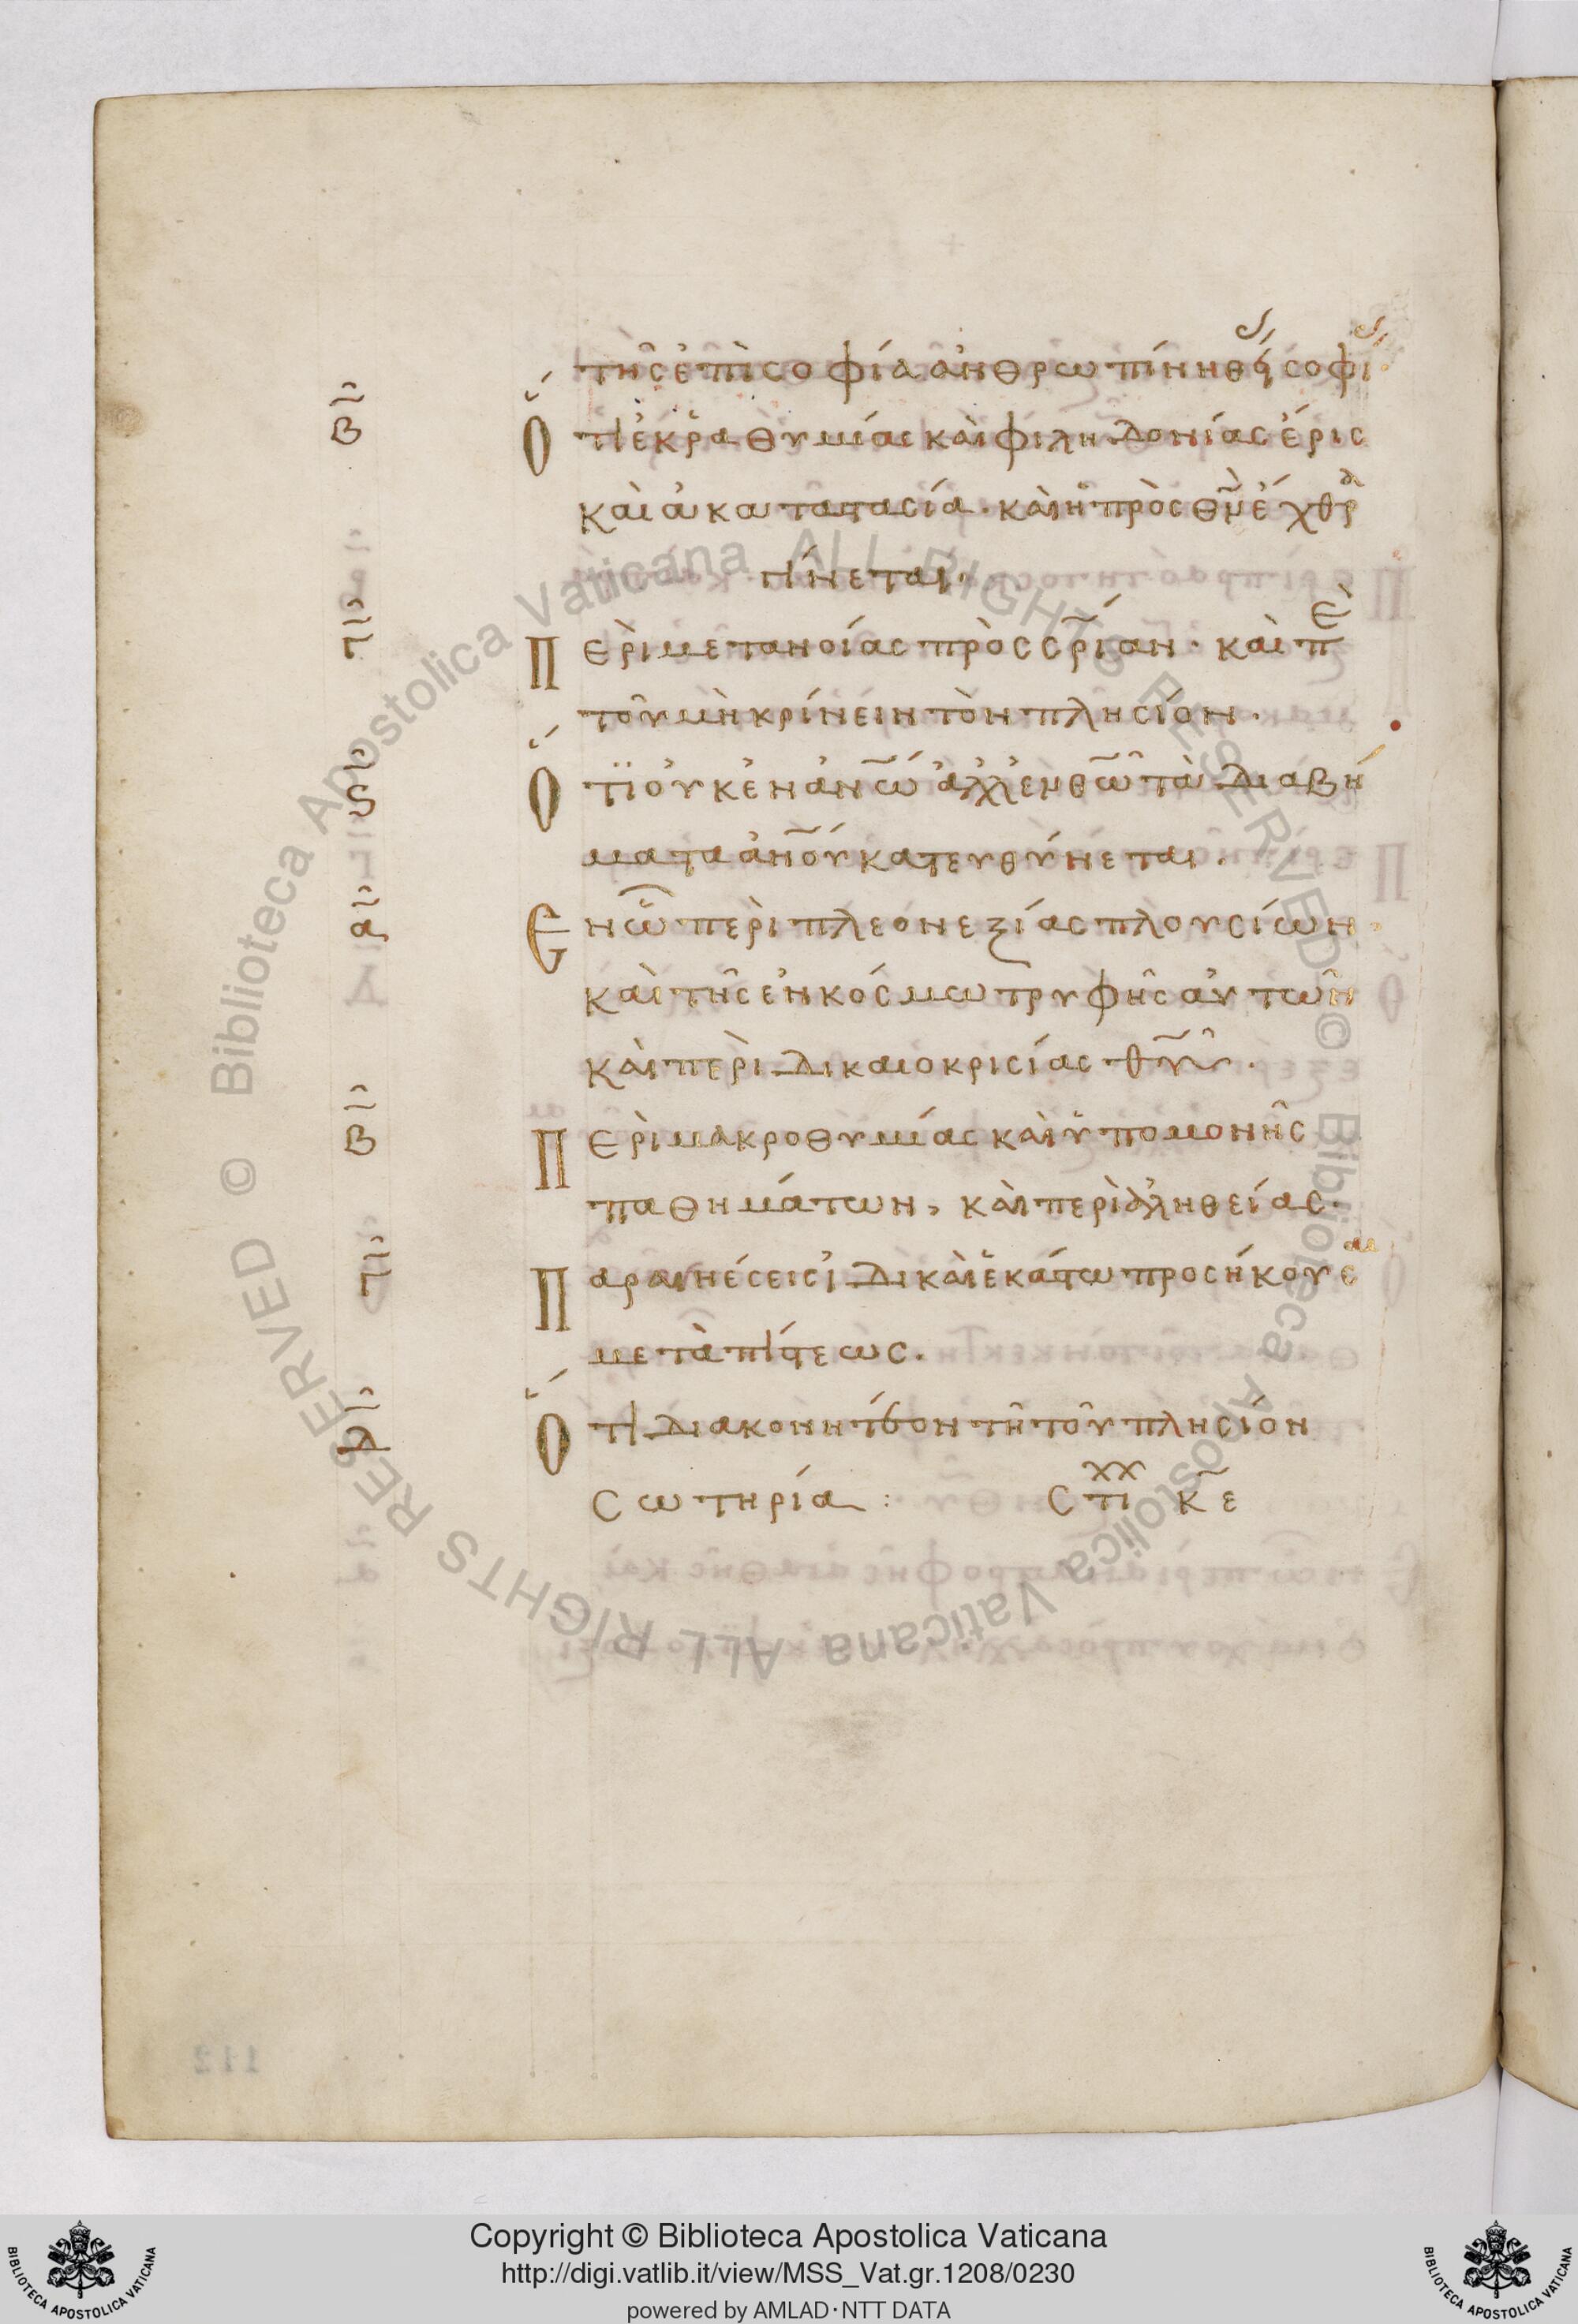 τῆς ἐπὶ σοφία ἀνθρωπίνη θ σοφι
βι Ὅτι ἐκ ῥαθυμίας καὶ φιληδονίας ἔρις
καὶ ἀκαταστασία· καὶ ἡ πρὸς θν ἔχθρ
γίνεται·
γι Περὶ μετανοίας πρὸς σρίαν· καὶ πε
τοῦ μὴ κρίνειν τὸν πλησίον·
Ὅτι οὐκ ἐν ἀνω ἀλλ ἐν θω τὰ διαβή
ματα ἀνου κατευθύνεται·
αι Ἐν ω περὶ πλεονεξίας πλουσίων
καὶ τῆς ἐν κόσμω τρυφῆς αὐτῶν
καὶ περὶ δικαιοκρισίας θυ·
βι Περὶ μακροθυμίας καὶ ὑπομονῆς
παθημάτων, καὶ περὶ ἀληθείας·
γι Παραινέσεις ἰδικαὶ ἑκάστω προσήκουσαι
μετὰ πίστεως·
Ὅτι διακονητέον τῆ τοῦ πλησίον
Σωτηρία: Στιχχ κε
112
© Biblioteca Apostolica Vaticana ALL RIGHTS RESERVED © Biblioteca Apostolica Vaticana ALL RIGHTS RESERVED
Copyright © Biblioteca Apostolica Vaticana
http://digi.vatlib.it/view/MSS_Vat.gr.1208/0230
powered by AMLAD·NTT DATA
BIBLIOTECA APOSTOLICA VATICANA
BIBLIOTECA APOSTOLICA VATICANA